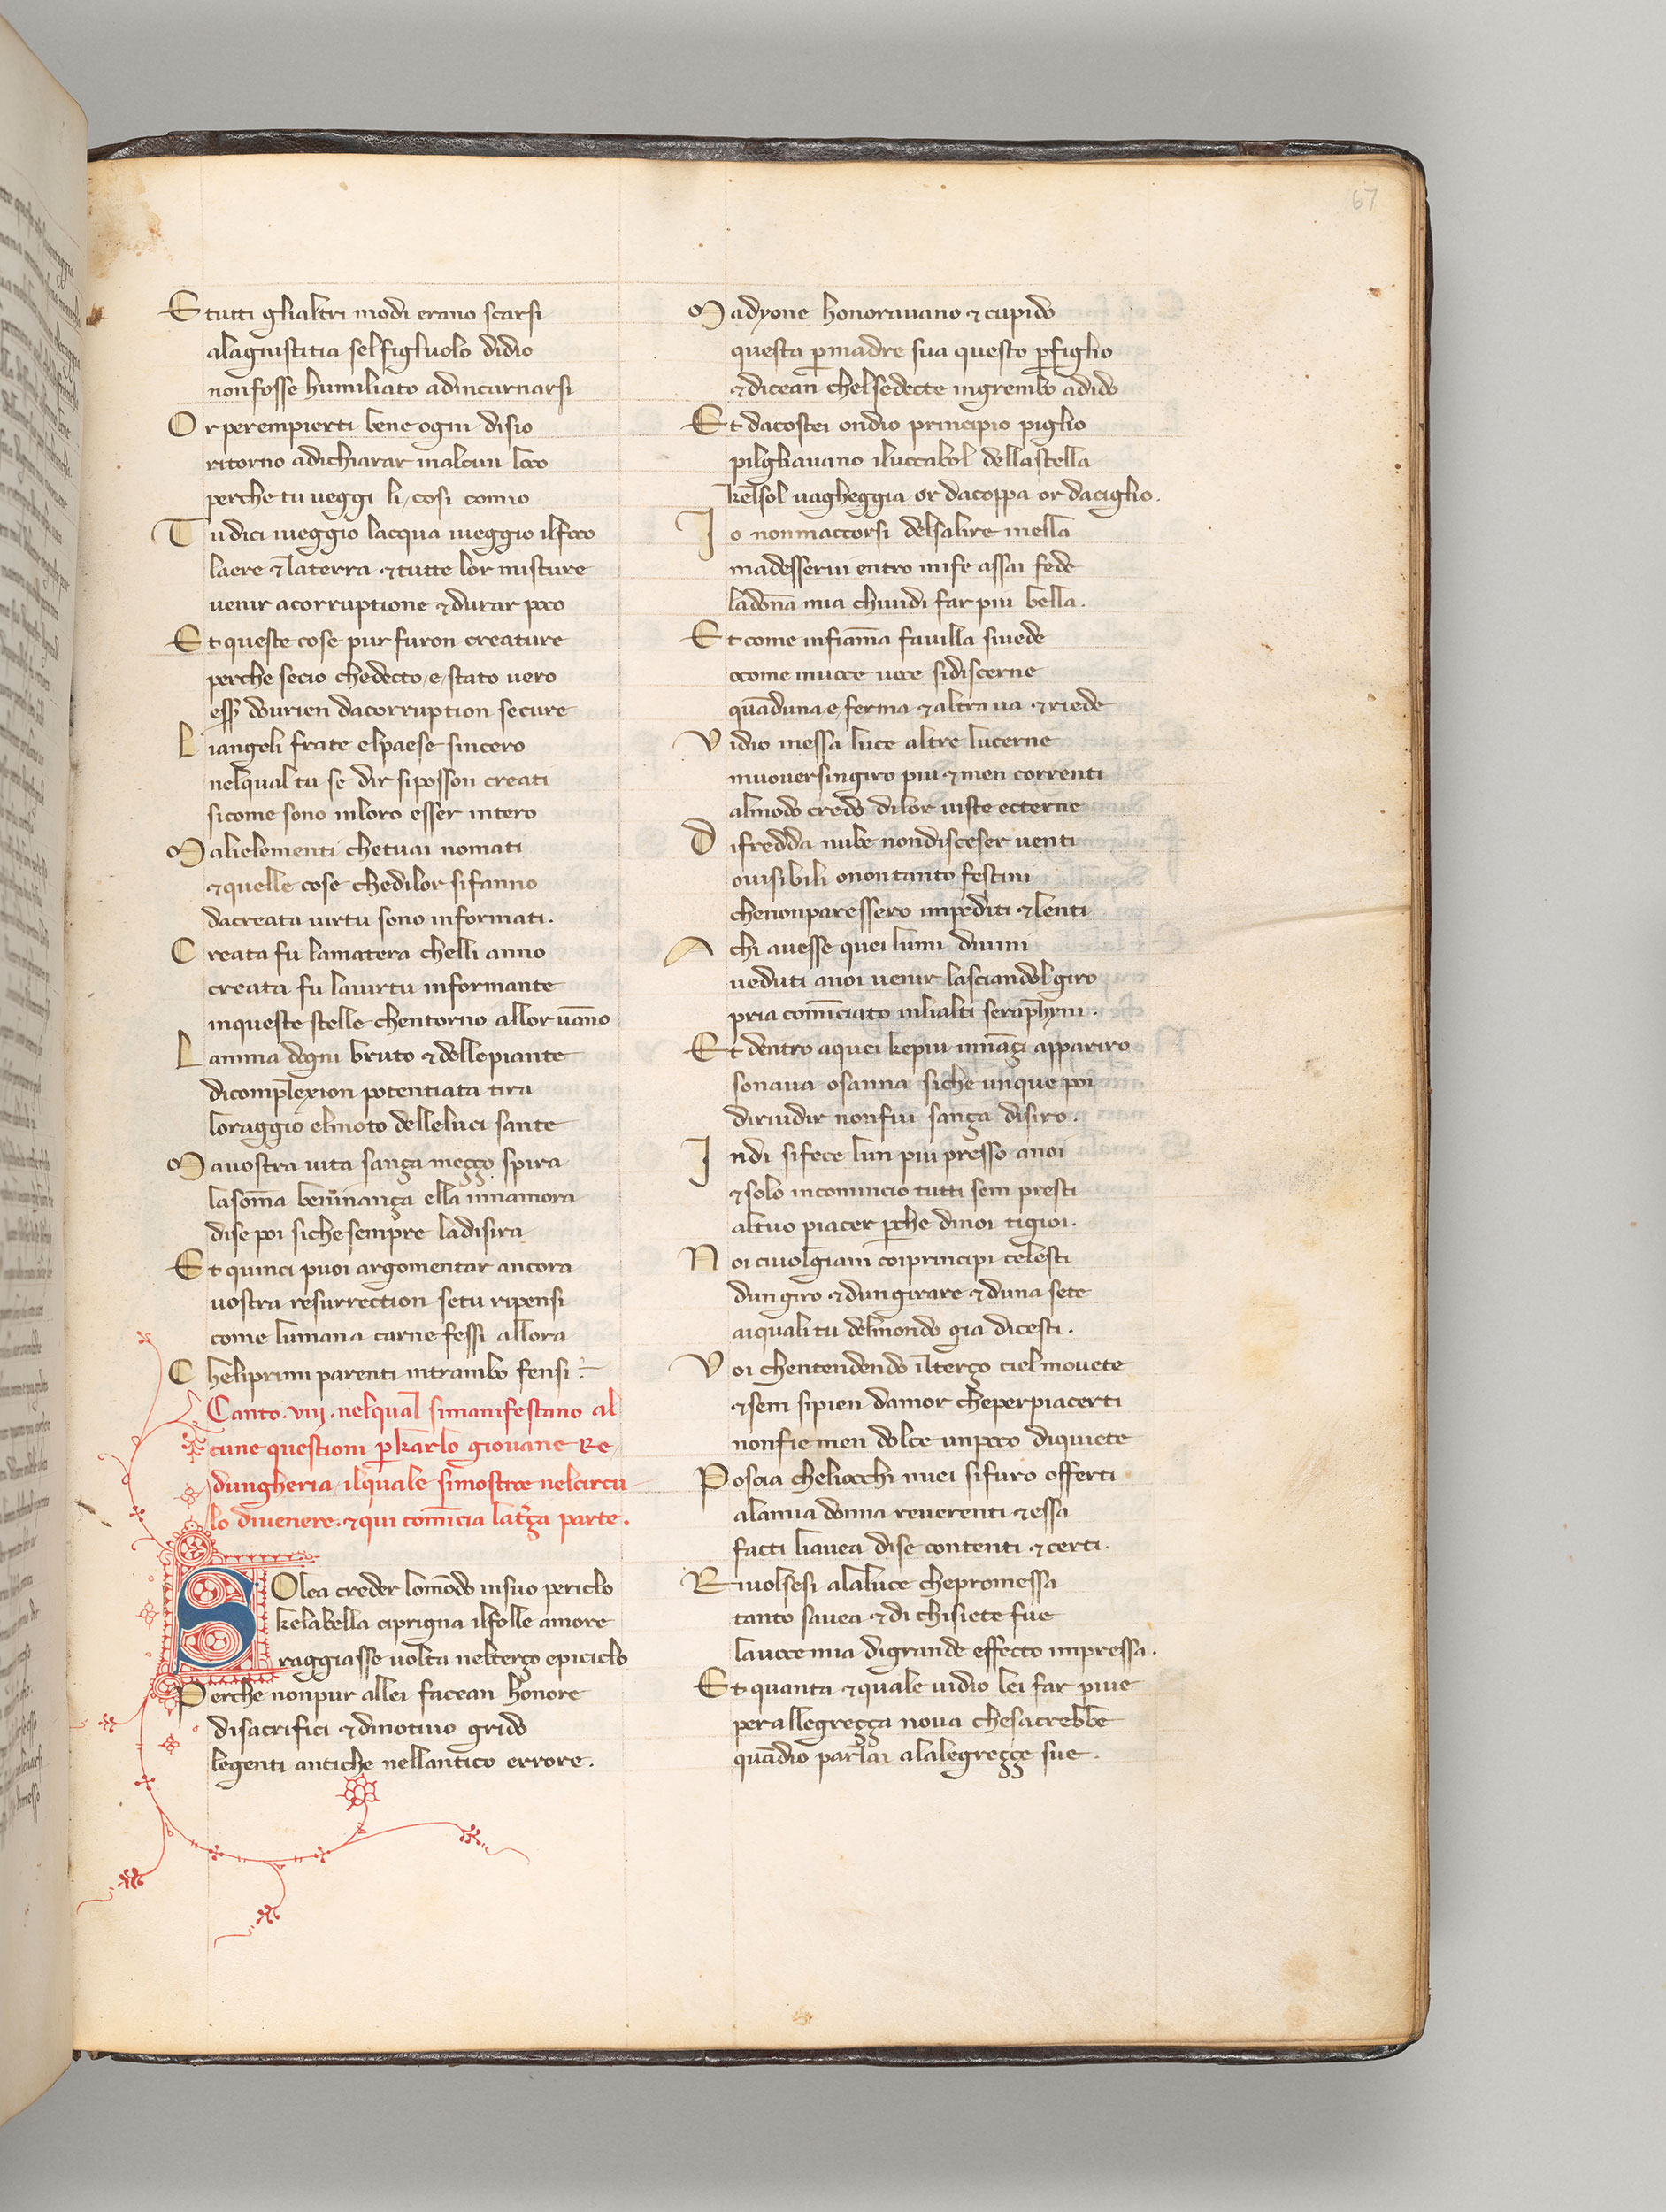 67
E tutti glialtri modi erano scarsi
alagiustitia selfigluolo didio
nonfosse humiliato adincarnarsi
Or perempierti bene ogni disio
ritorno adichiarar inalcun loco
perche tu ueggi li, cosi comio
Tu dici iueggio lacqua iueggio ilfoco
laere & laterra & tutte lor misture
uenir acorruptione & durar poco
Et queste cose pur furon creature
perche secio chedecto, e, stato uero
esser dourien dacorruption secure
Liangeli frate elpaese sincero
nelqual tu se dir siposson creati
sicome sono inloro esser intero
Malielementi chetuai nomati
& quelle cose chedilor sifanno
dacreata uirtu sono informati.
Creata fu lamatera chelli anno
creata fu lauirtu informante
inqueste stelle chentorno allor uāno
Lanima dogni bruto & dellepiante
dicomplexion potentiata tira
loraggio elmoto delleluci sante
Mauostra uita sança meçço spira
lasom̄a beninança ella innamora
dise poi sichesempre ladisira
Et quinci puoi argomentar ancora
uostra resurrection setu ripensi
come lumana carne fessi allora
Cheliprimi parenti intrambo fensi
Canto. viij. nelqual simanifestano al
cune questioni p karlo giouane Re
dungheria, ilquale simostroe nelcircu
lo diuenere. & qui comīcia latrça parte.
SOlea creder lomōdo insuo periclo
kelabella ciprigna ilfolle amore
raggiasse uolta nelterço epiciclo
Perche nonpur allei facean honore
disacrifici & diuotiuo grido
legenti antiche nellantico errore.
Madyone honorauano & cupido
questa p madre sua questo p figlio
& dicean chelsedecte ingrembo adido
Et dacostei ondio principio piglio
pilgliauano iluocabol dellastella
kelsol uagheggia or dacoppa or daciglio.
Io nonmaccorsi delsalire inella
madesserui entro mife assai fede
ladōna mia chiuidi far piu bella.
Et come infiam̄a fauilla siuede
ocome inuoce uoce sidiscerne
quāduna, e, ferma & altra ua & riede
Vidio inessa luce altre lucerne
muouersingiro piu & men correnti
almodo credo dilor uiste ecterne
Difredda nube nondisceser uenti
ouisibili onontanto festini
chenonparessero impediti & lenti
Achi auesse quei lumi diuini
ueduti anoi uenir lasciandol giro
pria comīciato inlialti seraphyni.
Et dentro aquei kepiu innāçi appariro
sonaua osanna siche unque poi
diriudir nonfui sança disiro.
Indi sifece lun piu presso anoi
& solo incomincio tutti sem presti
altuo piacer pche dinoi tigioi.
Noi ciuolgiam coiprincipi celesti
dun giro & dun girare & duna sete
aiquali tu delmondo gia dicesti.
Voi chentendendo ilterço ciel mouete
& sem sipien damor cheperpiacerti
nonfie men dolce unpoco diquiete
Poscia cheliocchi miei sifuro offerti
alamia donna reuerenti & essa
facti liauea dise contenti & certi.
Riuolsesi alaluce chepromessa
tanto sauea & di chisiete fue
lauoce mia digrande effecto impressa.
Et quanta & quale uidio lei far piue
per allegreçça noua chesacrebbe
quādio parlai alalegreççe sue.